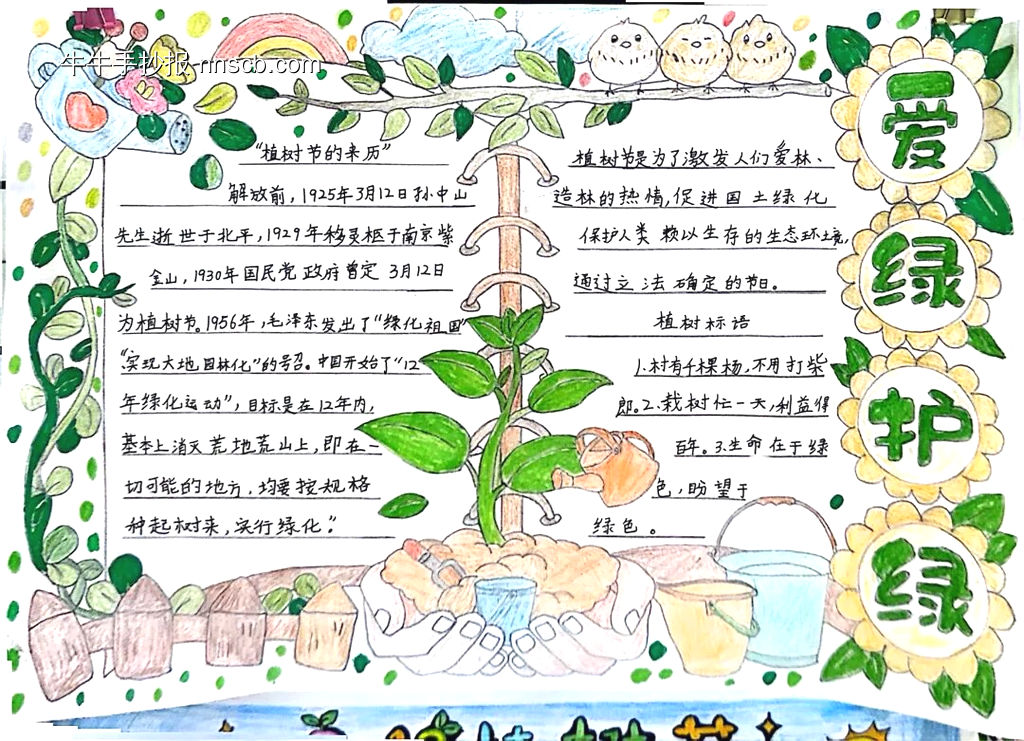 牛牛手抄报 nnscb.com
"植树节的来历"
解放前，1925年3月12日孙中山
先生逝世于北平，1929年移灵柩于南京紫
金山，1930年国民党政府曾定3月12日
为植树节。1956年，毛泽东发出了"绿化祖国"
"实现大地园林化"的号召。中国开始了"12
年绿化运动"，目标是在12年内，
基本上消灭荒地荒山上，即在一
切可能的地方，均要按规格
种起树来，实行绿化。"
植树节是为了激发人们爱林、
造林的热情，促进国土绿化
保护人类赖以生存的生态环境，
通过立法确定的节日。
植树标语
1.村有千棵杨，不用打柴
郎。2、栽树忙一天，利益得
百年。3、生命在于绿
色，盼望于
绿色。
爱
绿
护
绿